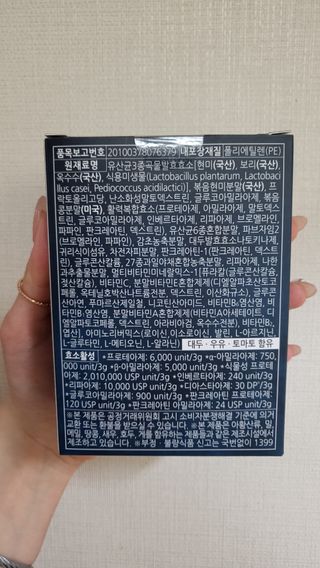 품목보고번호 20100378076379 내포장재질 폴리에틸렌(PE)
원재료명 유산균3종곡물발효효소[현미(국산), 보리(국산),
옥수수(국산), 식용미생물(Lactobacillus plantarum, Lactobaci
llus casei, Pediococcus acidilactici)], 볶음현미분말(국산), 프
락토올리고당, 난소화성말토덱스트린, 글루코아밀라아제, 볶음
콩분말(미국), 활력복합효소(프로테아제, 아밀라아제, 말토덱스
트린, 글루코아밀라아제, 인베르타아제, 리파아제, 브로멜라인,
파파인, 판크레아틴, 덱스트린), 유산균6종혼합분말, 파브자임2
(브로멜라인, 파파인), 감초농축분말, 대두발효효소나토키나제,
귀리식이섬유, 차전자피분말, 판크레아틴-1(판크레아틴, 덱스트
린), 글루콘산칼륨, 27종과일야채혼합농축분말, 리파아제, 나한
과추출물분말, 멀티비타민미네랄믹스-1[퓨리칼(글루콘산칼슘,
젖산칼슘), 비타민C, 분말비타민E혼합제제(디엘알파초산토코
페롤, 옥테닐호박산나트륨전분, 덱스트린, 이산화규소), 글루콘
산아연, 푸마르산제일철, 니코틴산아미드, 비타민B₂염산염, 비
타민B₁염산염, 분말비타민A혼합제제(비타민A아세테이트, 디
엘알파토코페롤, 덱스트린, 아라비아검, 옥수수전분), 비타민B₆
염산염], 아미노리버믹스(로이신,이소로이신, 발린, L-아르지닌,
L-글루타민, L-메티오닌, L-알라닌) 대두 · 우유 · 토마토 함유
효소활성 *프로테아제: 6,000 unit/3g *α-아밀라아제: 750,
000 unit/3g *β-아밀라아제: 5,000 unit/3g *식물성 프로테
아제: 2,010,000 USP unit/3g *인베르타아제: 240 unit/3g
*리파아제: 10,000 USP unit/3g *디아스타아제: 30 DP˚/3g
*글루코아밀라아제: 900 unit/3g *판크레아틴 프로테아제:
120 USP unit/3g *판크레아틴 아밀라아제: 24 USP unit/3g
※본 제품은 공정거래위원회 고시 소비자분쟁해결 기준에 의거
교환 또는 환불을 받으실 수 있습니다. ※본 제품은 아황산류, 밀,
메밀, 땅콩, 새우, 호두, 게를 함유하는 제품들과 같은 제조시설에서
제조하고 있습니다. ※부정 · 불량식품 신고는 국번없이 1399